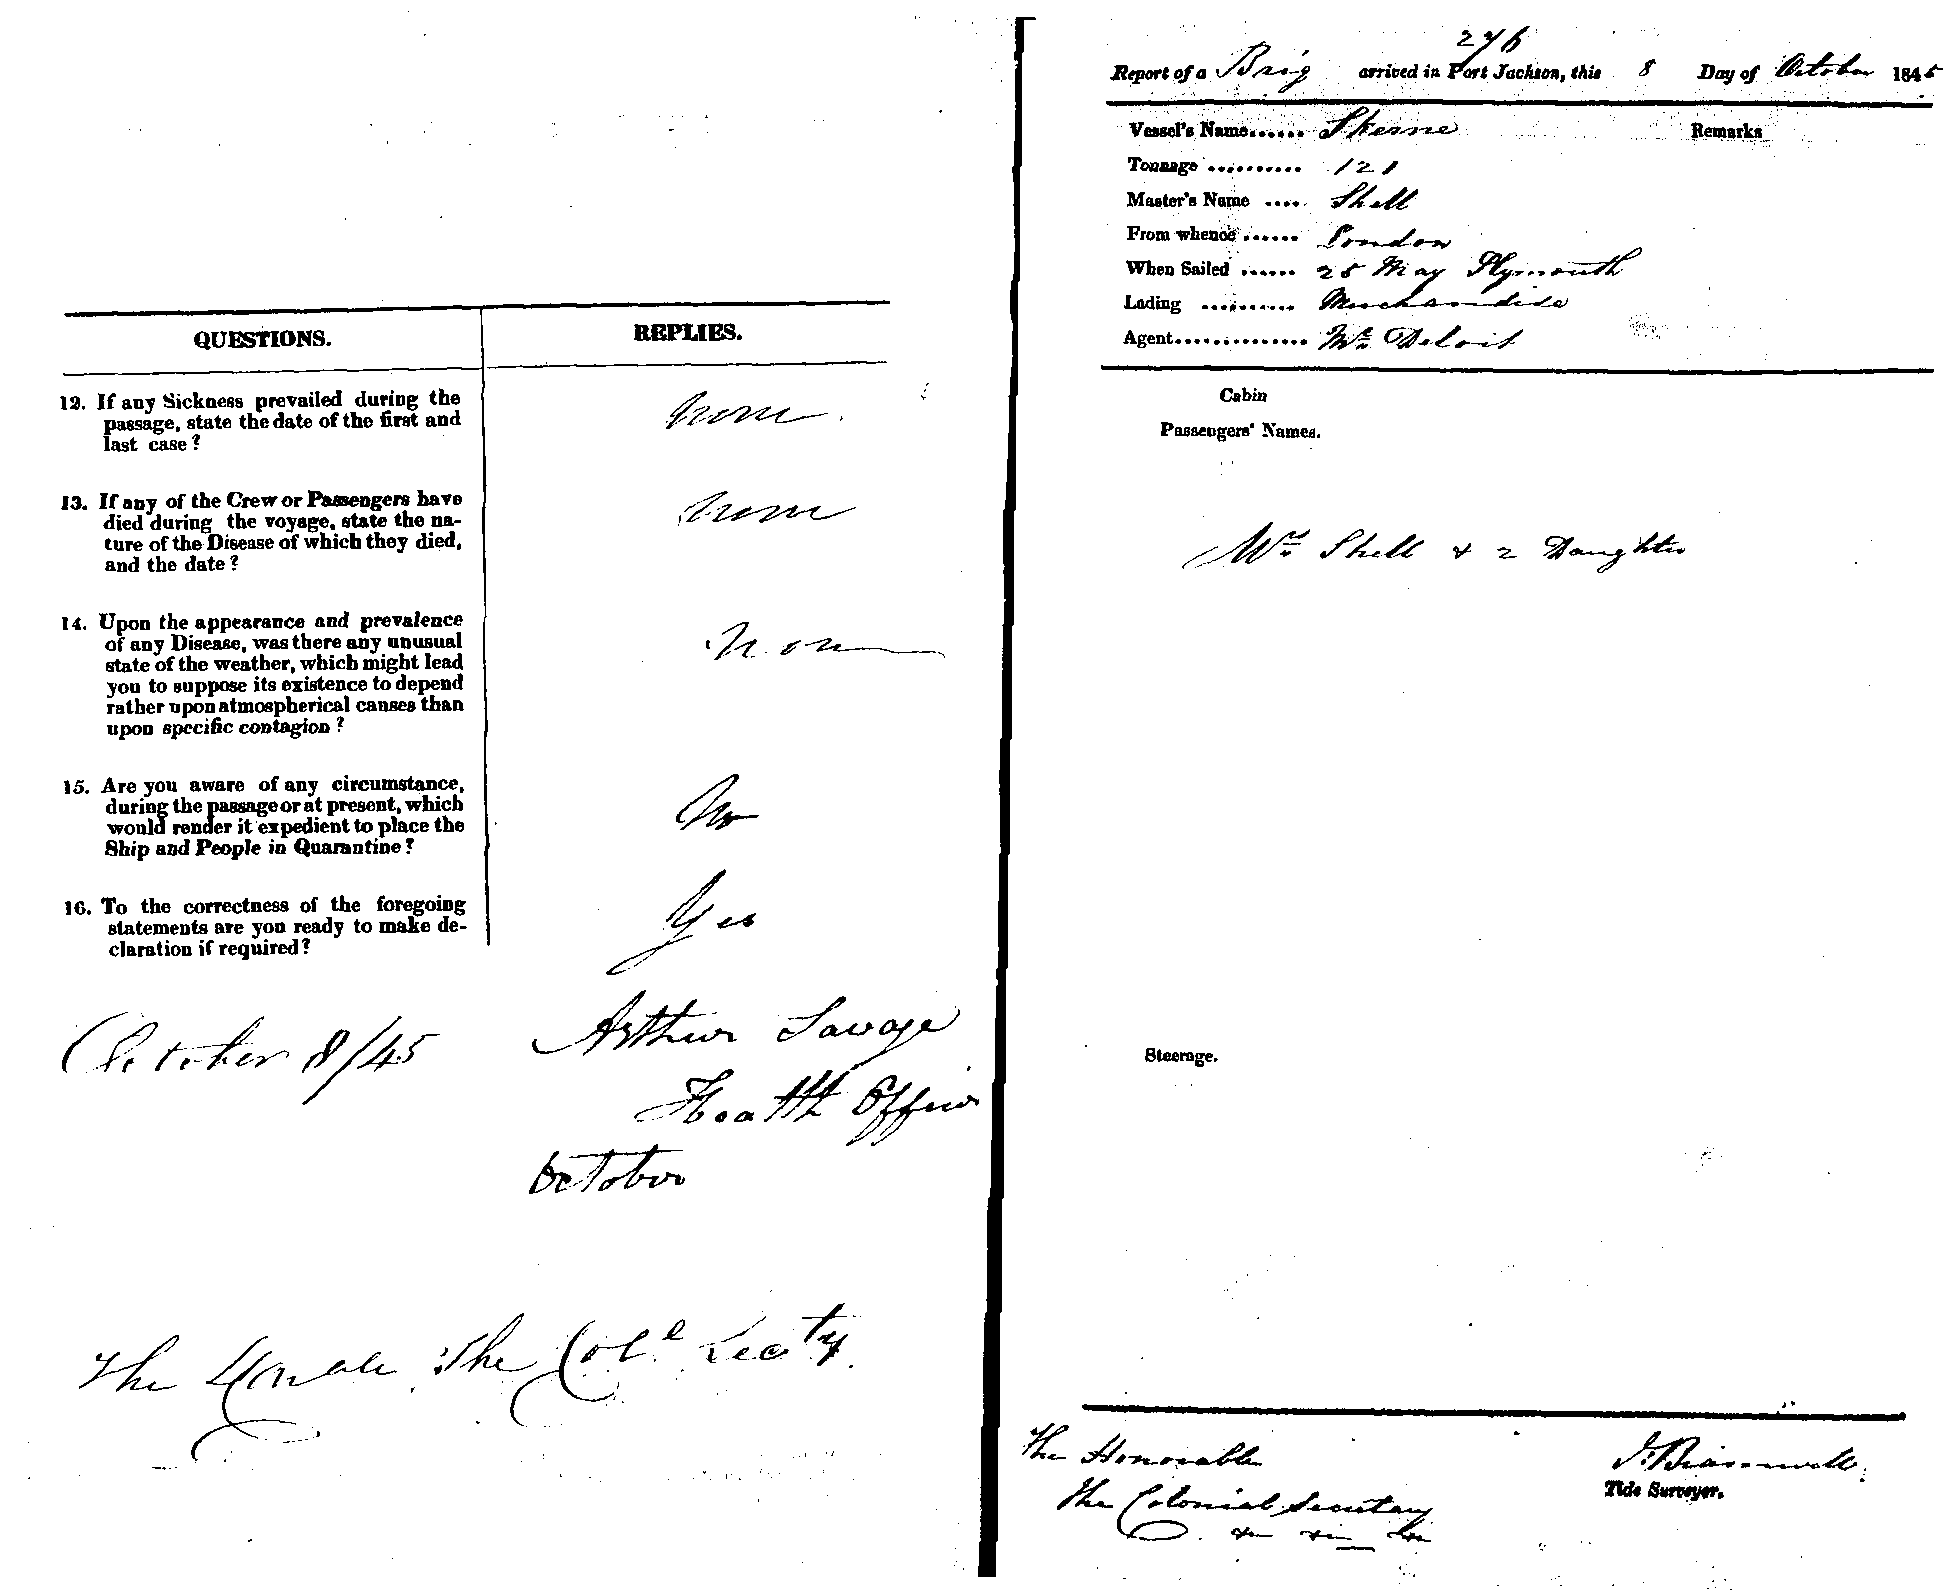 QUESTIONS.
REPLIES.
12. If any Sickness prevailed during the
passage, state the date of the first and
last case?
None
13. If any of the Crew or Passengers have
died during the voyage, state the na-
ture of the Disease of which they died,
and the date?
None
14. Upon the appearance and prevalence
of any Disease, was there any unusual
state of the weather, which might lead
you to suppose its existence to depend
rather upon atmospherical causes than
upon specific contagion?
None
15. Are you aware of any circumstance,
during the passage or at present, which
would render it expedient to place the
Ship and People in Quarantine?
No
16. To the correctness of the foregoing
statements are you ready to make de-
claration if required?
Yes
October 8/45
Arthur Savage
Health Officer
October
The Honble. The Col. Secty.
276
Report of a Brig arrived in Port Jackson, this 8 Day of October 1845
Vessel's Name...... Skerne
Remarks
Tonnage .......... 121
Master's Name .... Shell
From whence ...... London
When Sailed ...... 25 May Plymouth
Lading .......... Merchandise
Agent.............. Mr Deloit
Cabin
Passengers' Names.
Mrs Shell & 2 Daughters
Steerage.
The Honorable
The Colonial Secretary
Tide Surveyor.